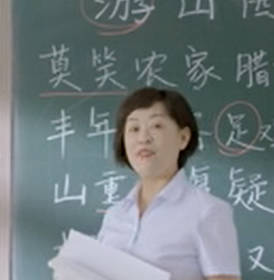 游山西
莫笑农家腊
丰年 足
山重 复疑
又